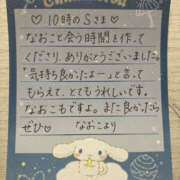 ♡10時のSさま♡
なおこと会う時間を作って
くださり、ありがとうございました。
"気持ち良かったよー"と言って
もらえて、とてもうれしいです。
なおこもですよ。また良かったら
ぜひ♡ なおこより